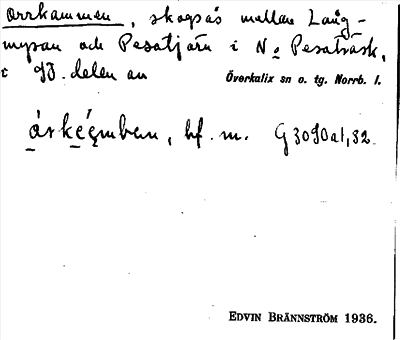 orrkammen, skogsås mellan Lång-
myran och Pesatjärn i No Pesaträsk,
i SO. delen av Överkalix sn o. tg. Norrb. l.
árkèe̜mben, bf. m. G3090a1,32.
EDVIN BRÄNNSTRÖM 1936.